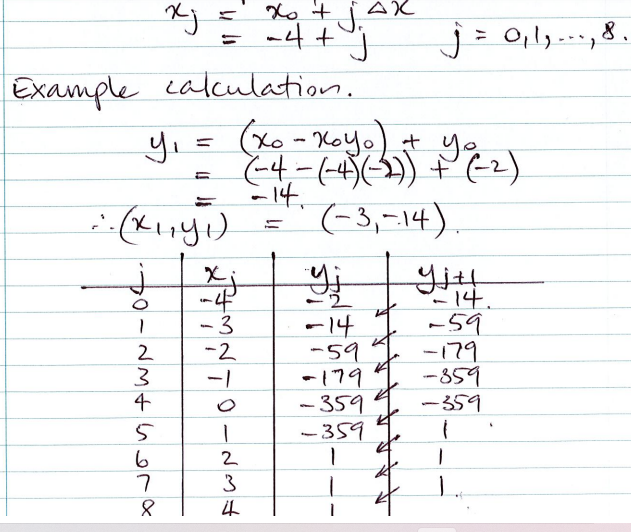 xj = x0 + jΔx
= -4 + j j = 0,1,...,8.
Example calculation.
y1 = (x0 - x0y0) + y0
= (-4 - (-4)(-2)) + (-2)
= -14.
∴(x1,y1) = (-3,-14).
j xj yj yj+1
0 -4 -2 -14.
1 -3 -14 -59
2 -2 -59 -179
3 -1 -179 -359
4 0 -359 -359
5 1 -359 1
6 2 1 1
7 3 1 1.
8 4 1